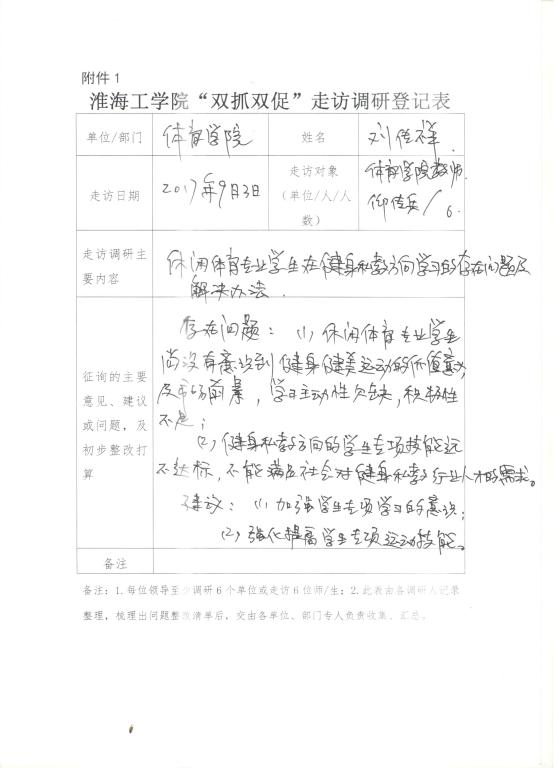 附件 1
淮海工学院“双抓双促”走访调研登记表
单位/部门 体育学院 姓名 刘传祥
走访日期 2017年9月3日 走访对象（单位/人/人数） 体育学院教师 仰传兵/6.
走访调研主要内容 休闲体育专业学生在健身私教方向学习的存在问题及
解决办法.
征询的主要意见、建议或问题，及初步整改打算
存在问题：(1) 休闲体育专业学生
尚没有意识到健身健美运动的价值意义
及市场前景，学习主动性欠缺，积极性
不足；
(2) 健身私教方向的学生专项技能远
不达标，不能满足社会对健身私教行业人才的需求。
建议：(1) 加强学生专项学习的意识；
(2) 强化提高学生专项运动技能。
备注
备注：1.每位领导至少调研6个单位或走访6位师/生；2.此表由各调研人记录
整理，梳理出问题整改清单后，交由各单位、部门专人负责收集、汇总。